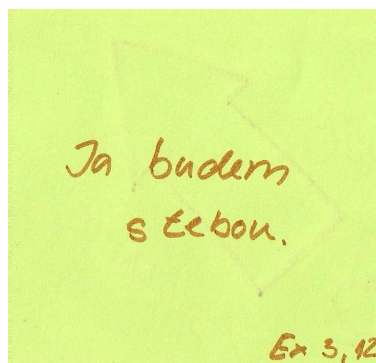 Ja budem
s tebou.
Ex 3,12